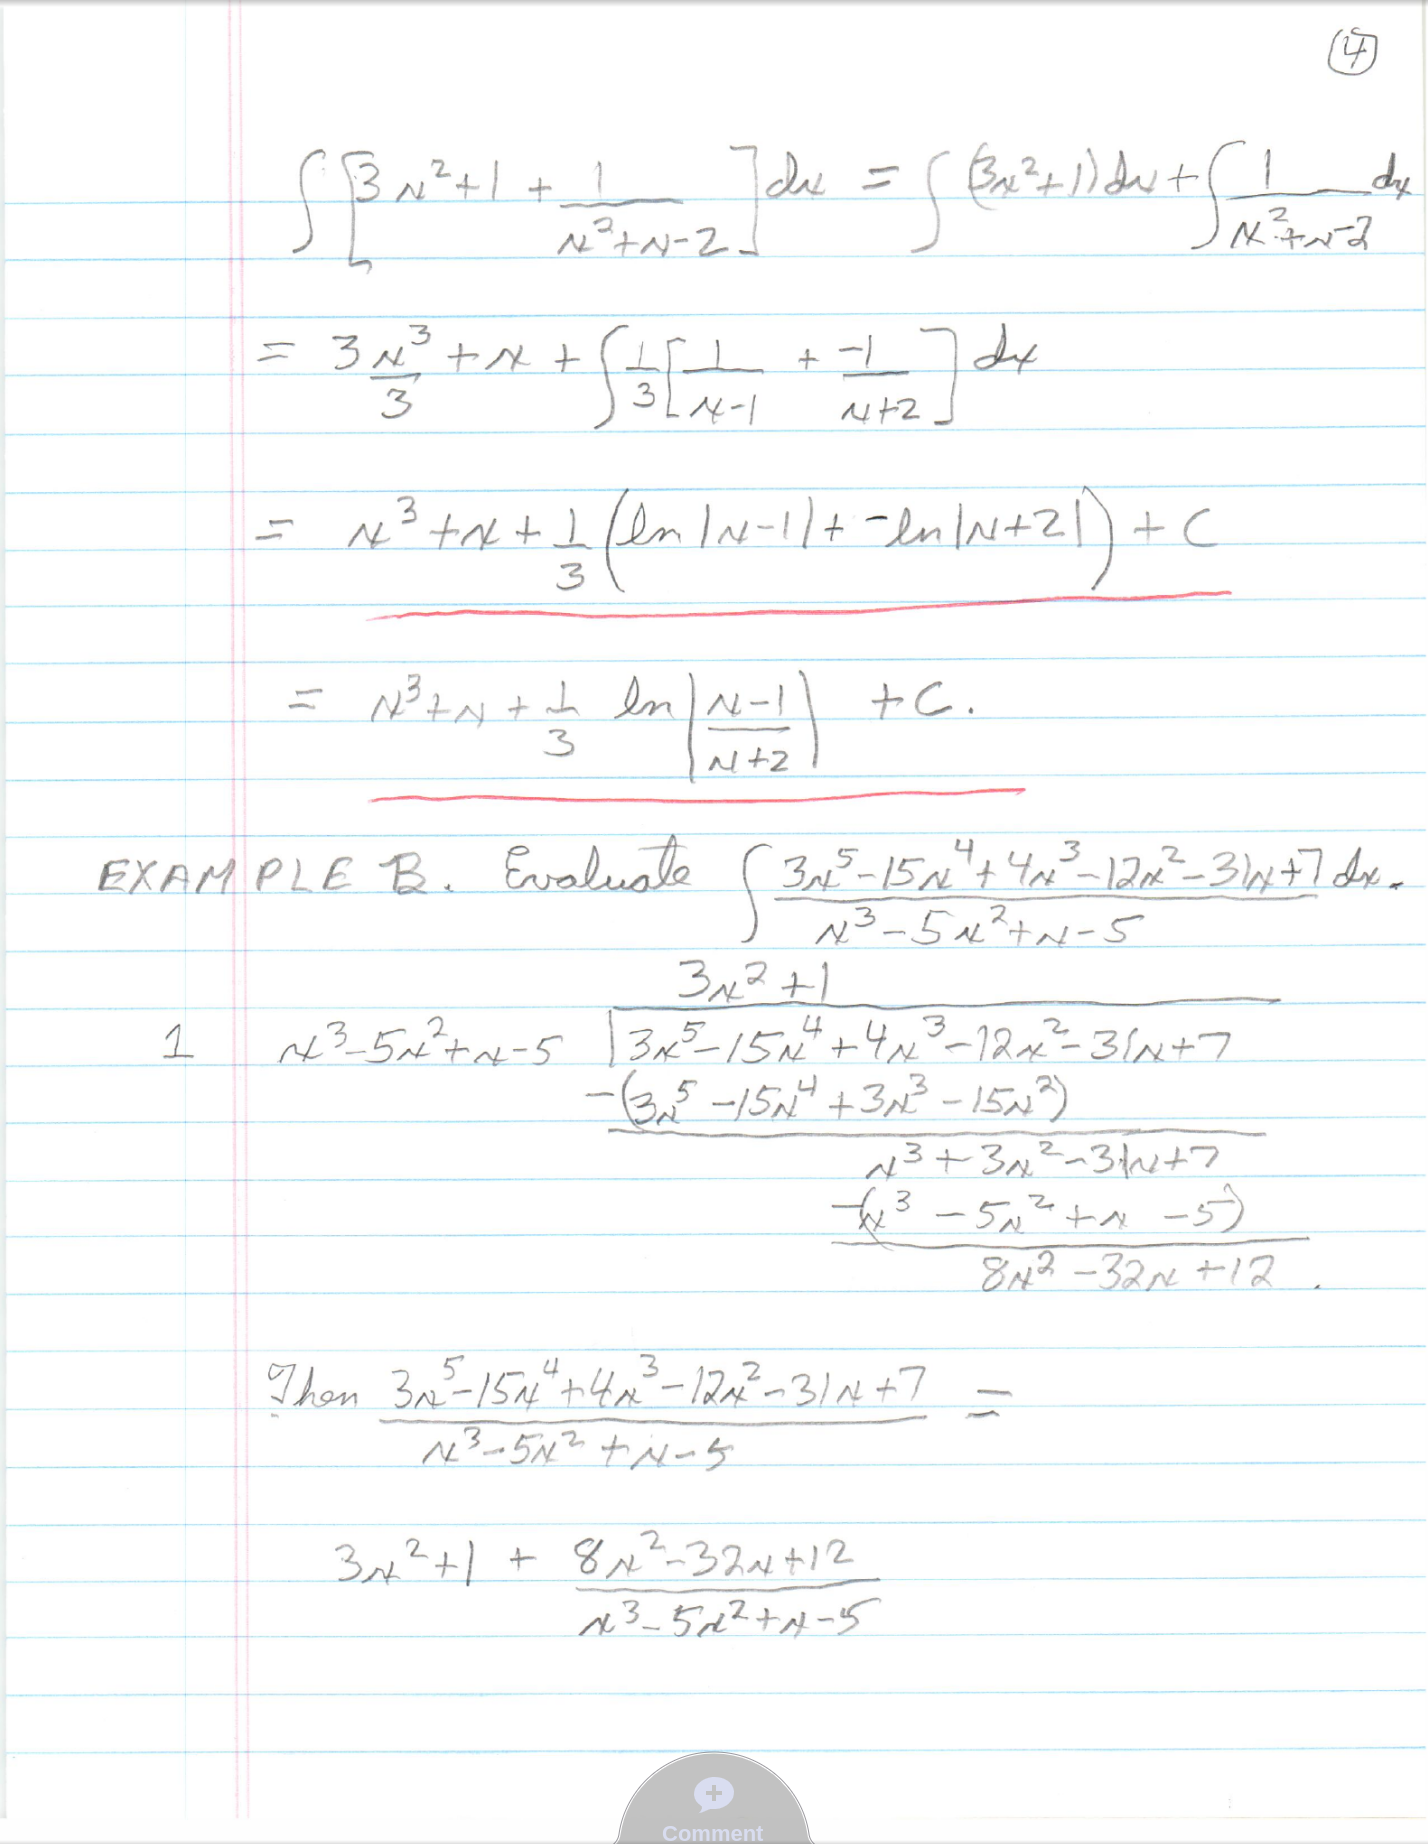 ④
∫ [3x²+1 + 1/(x²+x-2)] dx = ∫ (3x²+1)dx + ∫ 1/(x²+x-2) dx
= 3x³/3 + x + ∫ 1/3 [1/(x-1) + -1/(x+2)] dx
= x³ + x + 1/3 (ln|x-1| + -ln|x+2|) + C
= x³+x + 1/3 ln|(x-1)/(x+2)| + C.
EXAMPLE B. Evaluate ∫ (3x⁵-15x⁴+4x³-12x²-31x+7)/(x³-5x²+x-5) dx.
3x²+1
1 x³-5x²+x-5 | 3x⁵-15x⁴+4x³-12x²-31x+7
-(3x⁵-15x⁴+3x³-15x²)
x³+3x²-31x+7
-(x³-5x²+x-5)
8x²-32x+12.
Then (3x⁵-15x⁴+4x³-12x²-31x+7)/(x³-5x²+x-5) =
3x²+1 + (8x²-32x+12)/(x³-5x²+x-5)
Comment